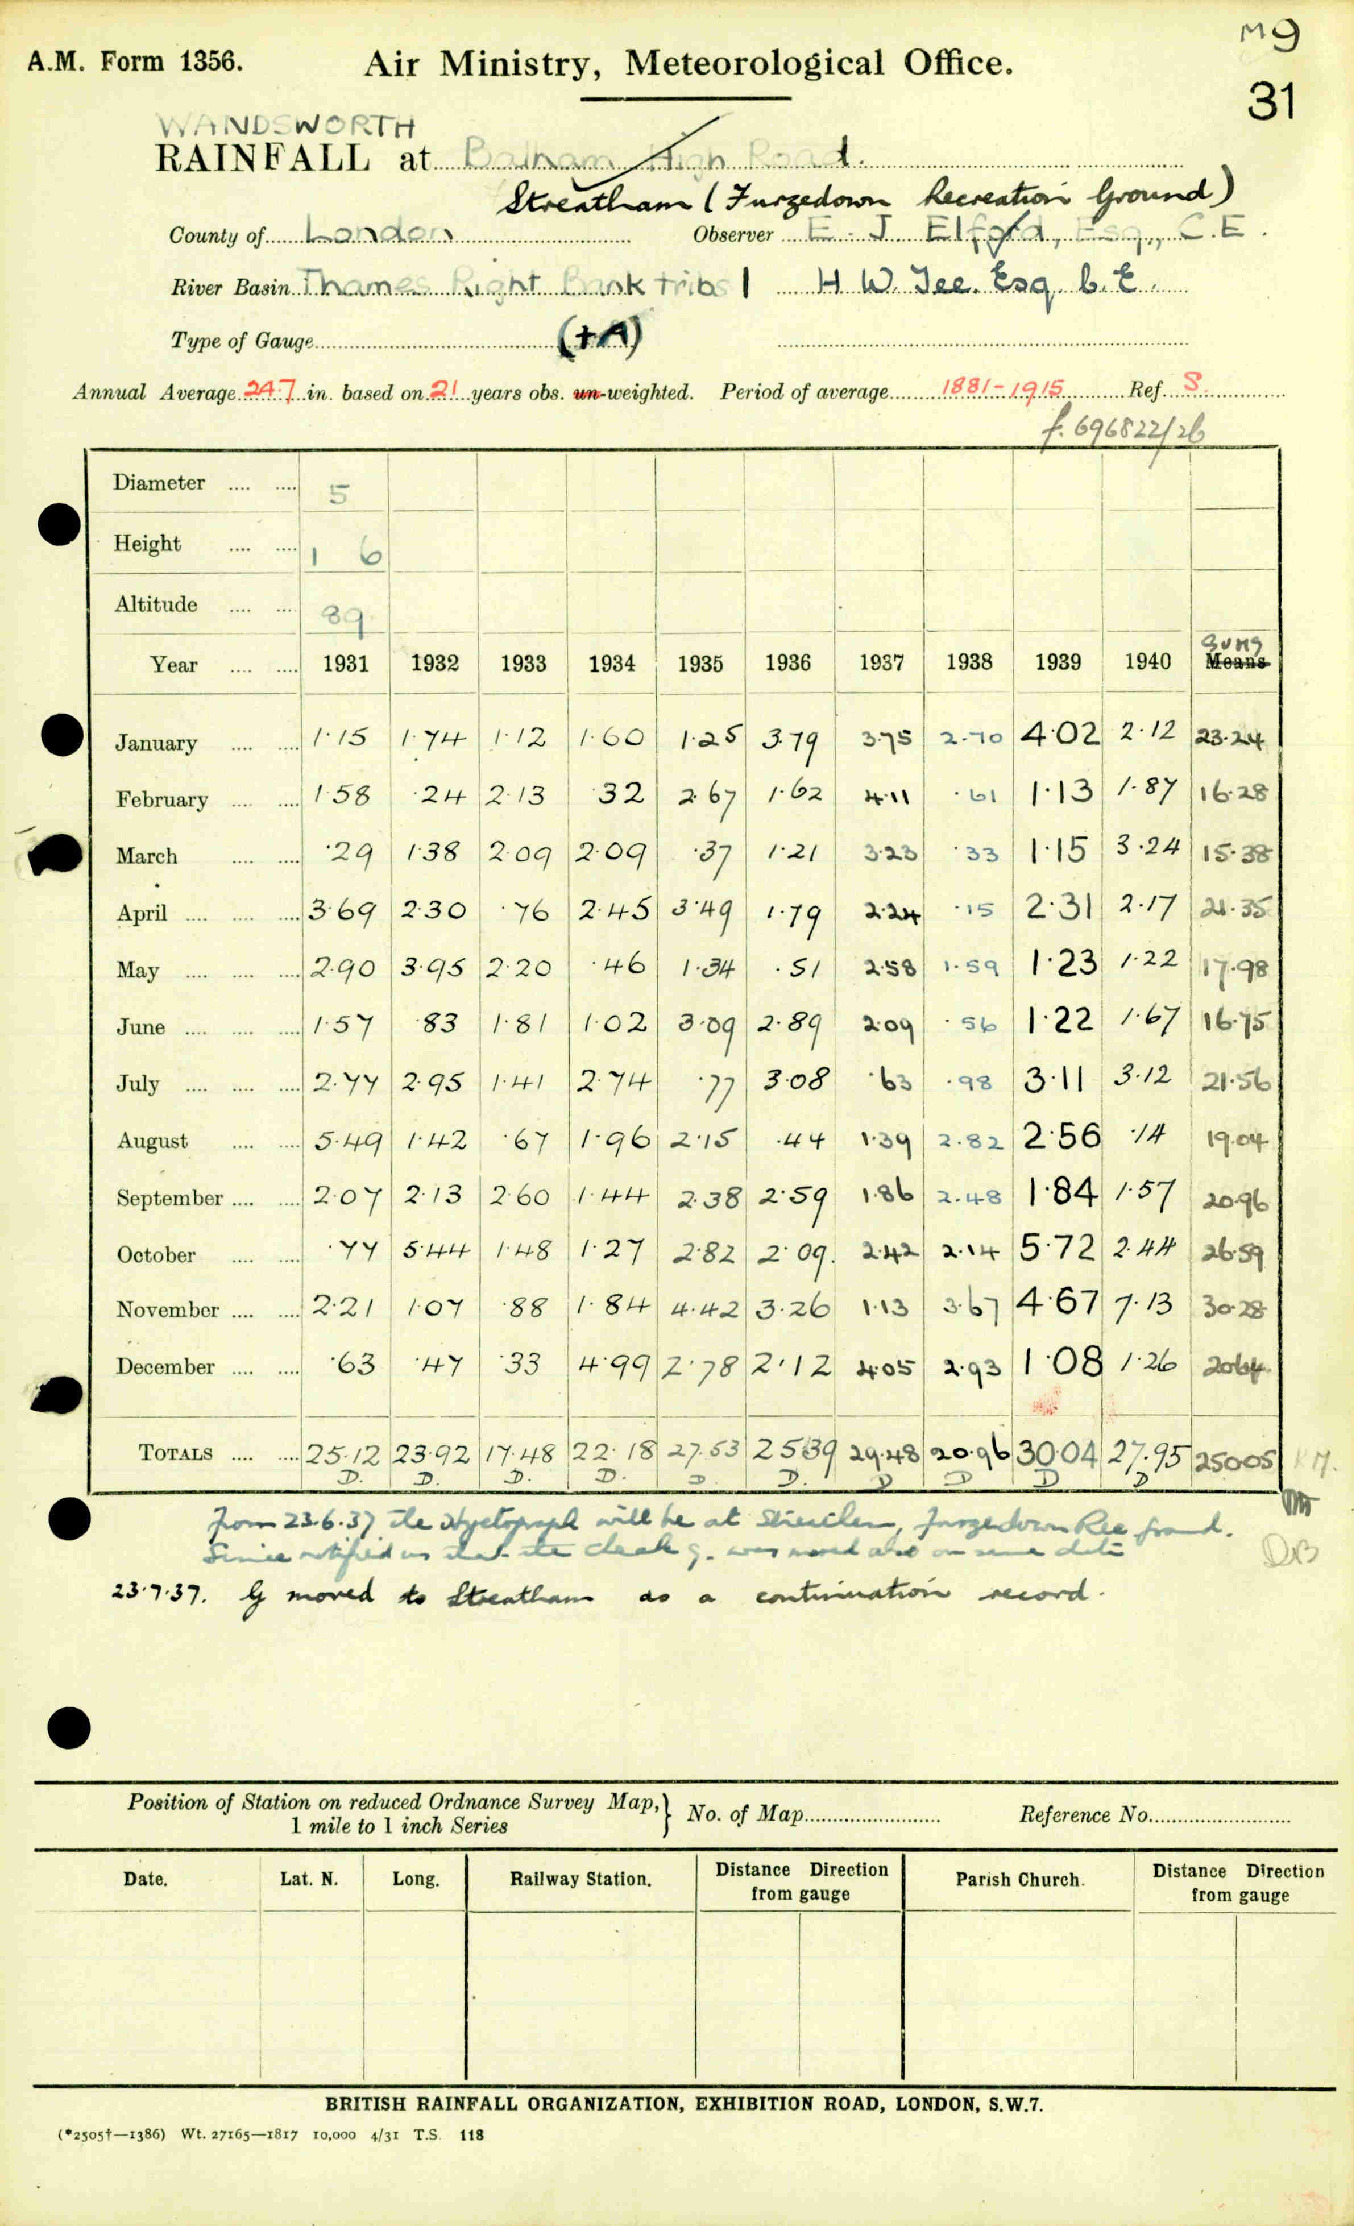 M9
A.M. Form 1356. Air Ministry, Meteorological Office.
31
WANDSWORTH
RAINFALL at Balham High Road.
Streatham (Furzedown Recreation Ground)
County of London Observer E. J. Elford, Esq., C.E.
River Basin Thames Right Bank tribs 1 H. W. Tee. Esq. C. E.
Type of Gauge (+A)
Annual Average 24.7 in. based on 21 years obs. un-weighted. Period of average 1881-1915 Ref. S.
f. 696822/26
Diameter .... .... 5
Height .... .... 1 6
Altitude .... .... 89
Sums
Year .... .... 1931 1932 1933 1934 1935 1936 1937 1938 1939 1940 Means
January .... .... 1.15 1.74 1.12 1.60 1.25 3.79 3.75 2.70 4.02 2.12 23.24
February .... .... 1.58 .24 2.13 .32 2.67 1.62 4.11 .61 1.13 1.87 16.28
March .... .... .29 1.38 2.09 2.09 .37 1.21 3.23 .33 1.15 3.24 15.38
April .... .... .... 3.69 2.30 .76 2.45 3.49 1.79 2.24 .15 2.31 2.17 21.35
May .... .... .... 2.90 3.95 2.20 .46 1.34 .51 2.58 1.59 1.23 1.22 17.98
June .... .... .... 1.57 .83 1.81 1.02 3.09 2.89 2.09 .56 1.22 1.67 16.75
July .... .... .... 2.77 2.95 1.41 2.74 .77 3.08 .63 .98 3.11 3.12 21.56
August .... .... 5.49 1.42 .67 1.96 2.15 .44 1.39 2.82 2.56 .14 19.04
September .... .... 2.07 2.13 2.60 1.44 2.38 2.59 1.86 2.48 1.84 1.57 20.96
October .... .... .77 5.44 1.48 1.27 2.82 2.09. 2.42 2.14 5.72 2.44 26.59
November .... .... 2.21 1.07 .88 1.84 4.42 3.26 1.13 3.67 4.67 7.13 30.28
December .... .... .63 .47 .33 4.99 2.78 2.12 4.05 2.93 1.08 1.26 20.64
TOTALS .... .... 25.12 23.92 17.48 22.18 27.53 25.39 29.48 20.96 30.04 27.95 250.05
D. D. D. D. D. D. D D D D
From 23.6.37 the Hyetograph will be at Streatham, Furzedown Rec ground.
Since notified us that the check g. was moved also on same date
DB
23.7.37. G moved to Streatham as a continuation record.
Position of Station on reduced Ordnance Survey Map,} No. of Map Reference No.
1 mile to 1 inch Series
Date. Lat. N. Long. Railway Station. Distance Direction from gauge Parish Church. Distance Direction from gauge
BRITISH RAINFALL ORGANIZATION, EXHIBITION ROAD, LONDON, S.W.7.
(*2505†—1386) Wt. 27165—1817 10,000 4/31 T.S. 118